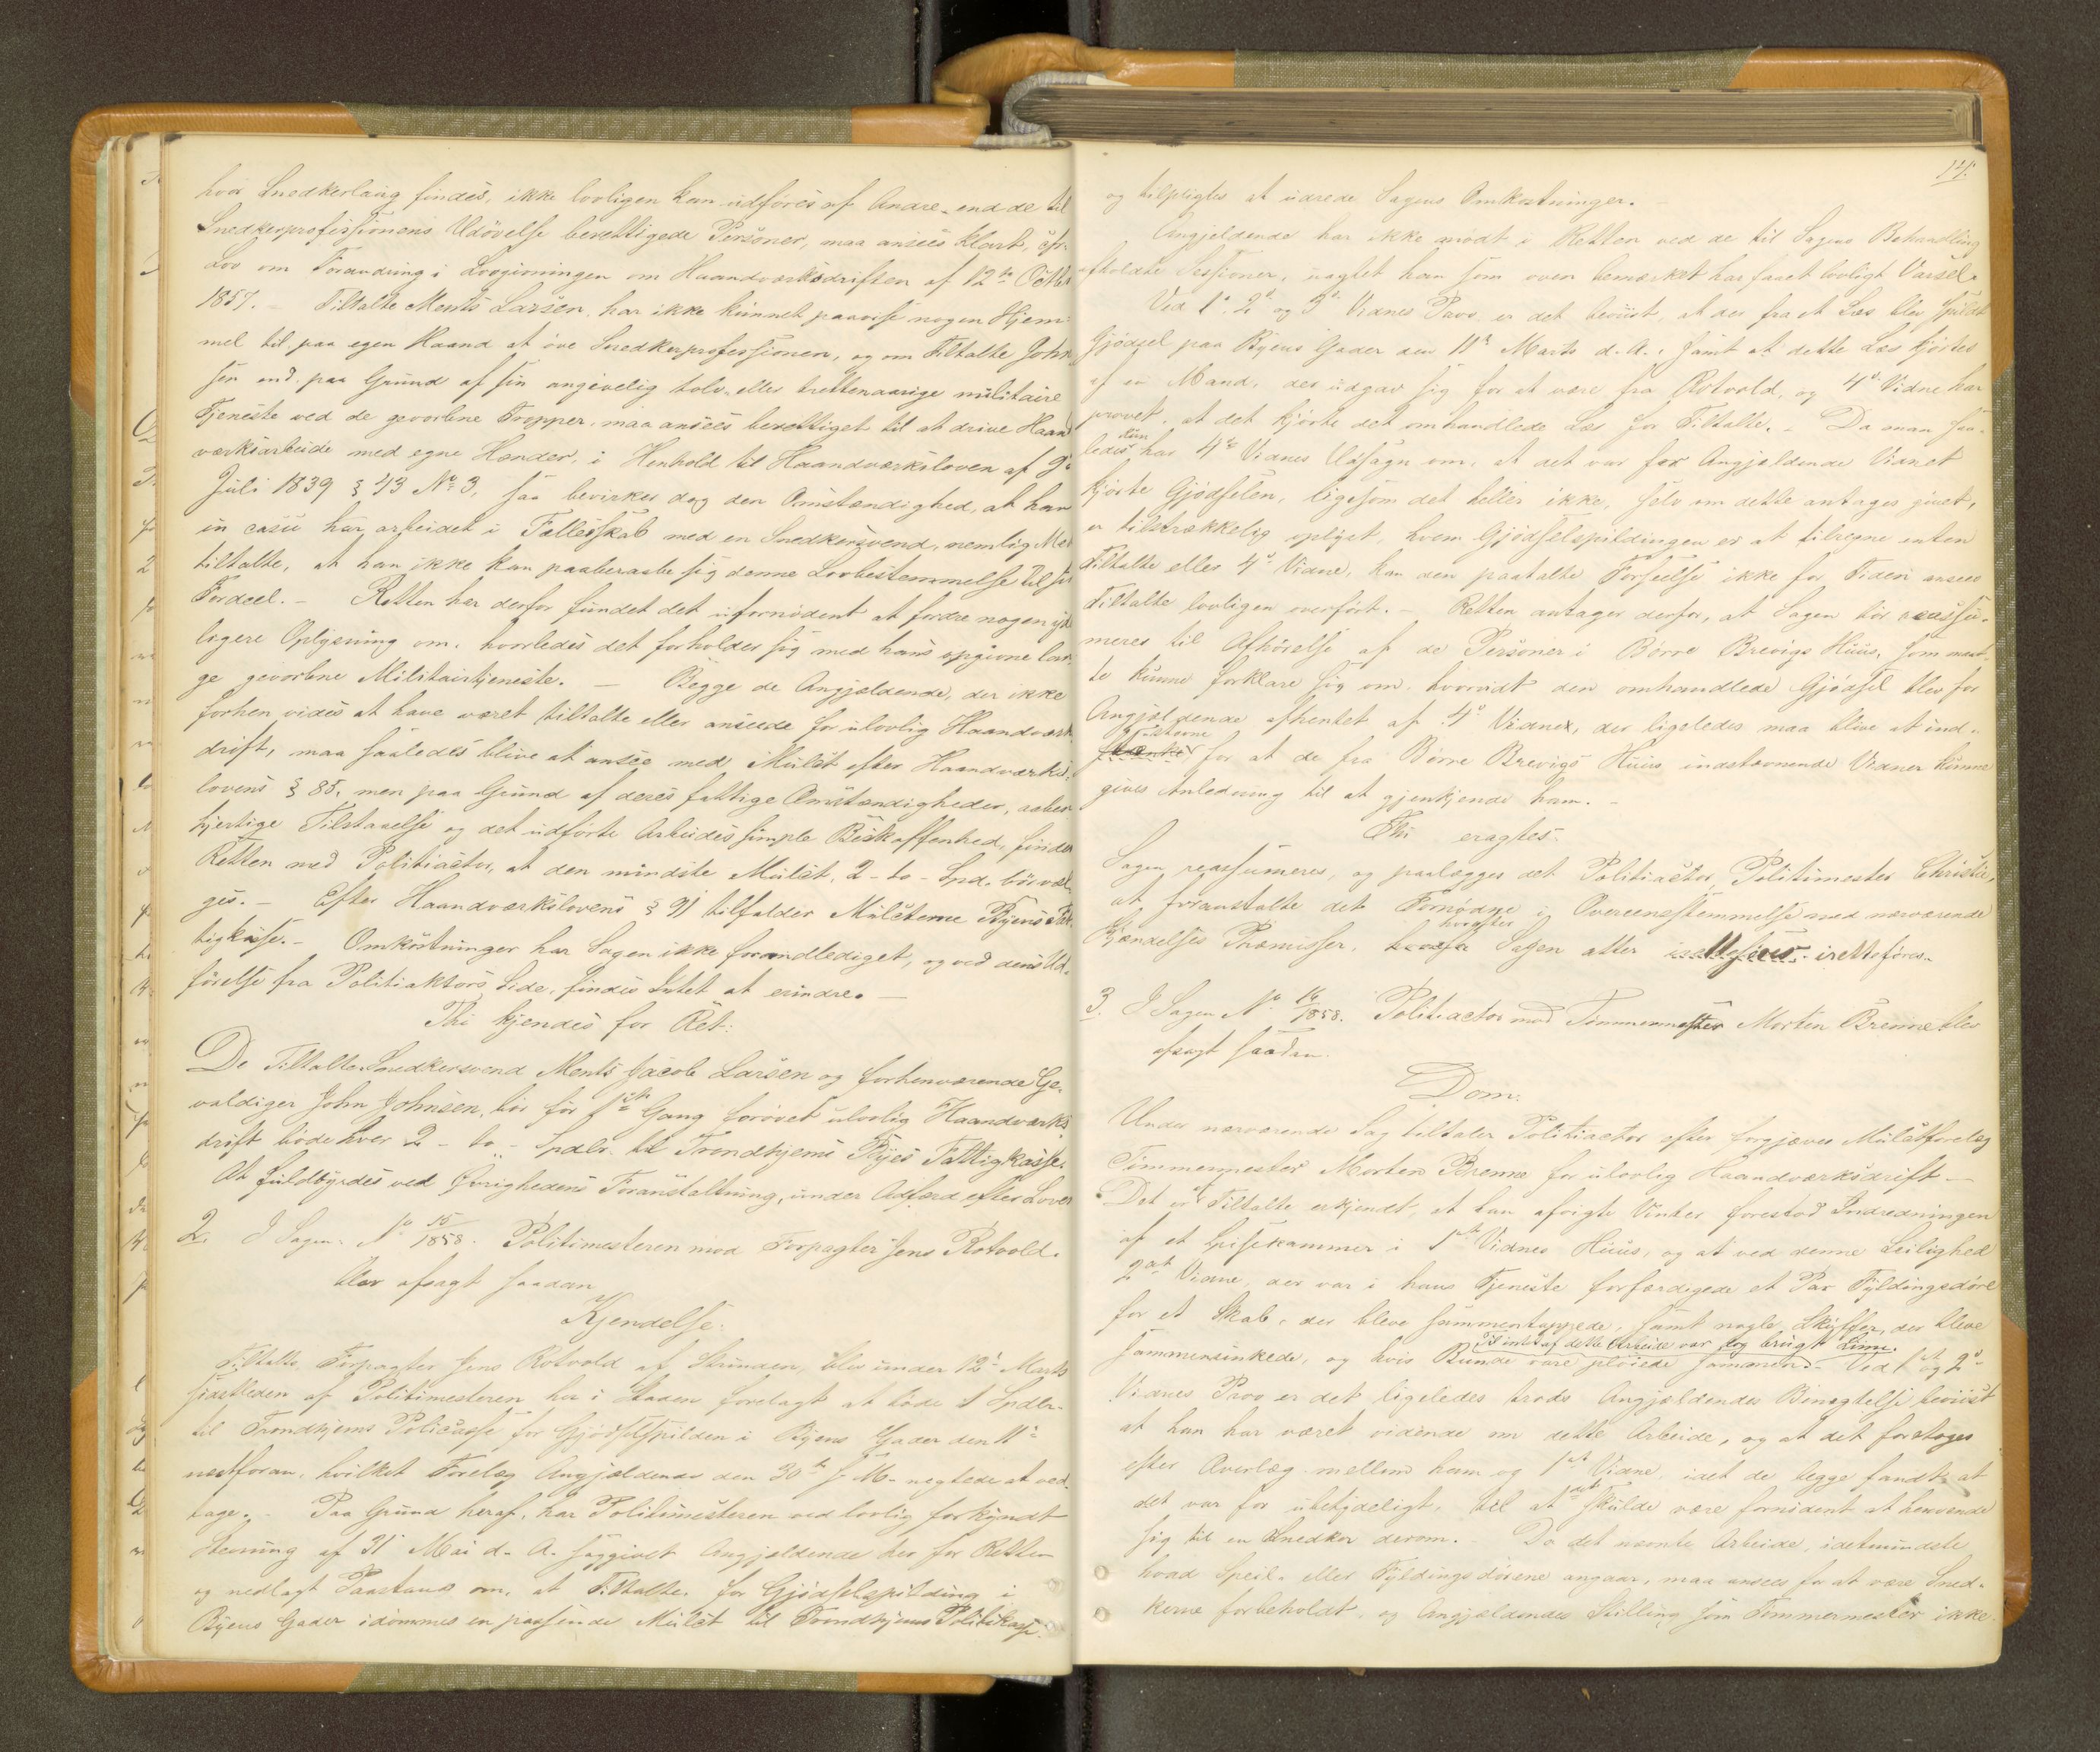 hvor Snedkerlaug findes, ikke lovligen kan udföres af Andre, end de til
Snedkerprofessionens Udövelse berettigede Personer, maa ansees klart, cfr.
Lov om Forandring i Lovgivningen om Haandværksdriften af 12te Octbr
1857. - Tiltalte Ments Larsen, har ikke kunnet paavise nogen Hjem-
mel til paa egen Haand at öve Snedkerprofessionen, og om Tiltalte John
sen end paa Grund af sin angivelig tolv- eller trettenaarige militaire
Tjeneste ved de gevorbne Tropper, maa ansees berettiget til at drive Haand
værksarbeide med egne Hænder, i Henhold til Haandværksloven af 9de
Juli 1839 § 43 No 3, saa bevirker dog den Omstændighed, at han
in casu har arbeidet i Fællesskab med en Snedkersvend, nemlig Med
tiltalte, at han ikke kan paaberaabe sig denne Lovbestemmelse til sin
Fordeel. - Retten har derfor fundet det ufornödent at fordre nogen yder
ligere Oplysning om, hvorledes det forholder sig med hans opgivne lan-
ge gevorbne Militairtjeneste. - Begge de Angjældende, der ikke
forhen vides at have været tiltalte eller anseede for ulovlig Haandværks
drift, maa saaledes blive at ansee med Mulct efter Haandværks-
lovens § 85, men paa Grund af deres fattige Omstændigheder, aaben
hjertige Tilstaaelse og det udförte Arbeides simple Beskaffenhed, finder
Retten med Politiactor, at den mindste Mulct, 2 - to - Spd. bör væl-
ges. - Efter Haandværkslovens § 91 tilfalder Mulcterne Byens Fat-
tigkasse. - Omkostninger har Sagen ikke foranlediget, og ved dens Ud-
förelse fra Politiaktors Side, findes Intet at erindre. -
Thi kjendes for Ret:
De Tiltalte Snedkersvend Ments Jacob Larsen og forhenværende Ge-
valdiger John Johnsen, bör for 1ste Gang forövet ulovlig Haandværks
drift böde hver 2 - to - Spdlr. til Trondhjems Byes Fattigkasse.
At fuldbyrdes ved Övrighedens Foranstaltning, under Adfærd efter Loven
2. I Sagen No 15/1858. Politimesteren mod Forpagter Jens Rotvold.
blev afsagt saadan
Kjendelse:
Tiltalte Forpagter Jens Rotvold af Strinden, blev under 12te Marts
sidstleden af Politimesteren her i Staden forelagt at böde 1 Spdlr.
til Trondhjems Policasse for Gjödselspilden i Byens Gader den 11te
næstforan, hvilket Forelæg Angjældende den 30te s. M. negtede at ved-
tage. - Paa Grund heraf, har Politimesteren ved lovlig forkyndt
Stevning af 31 Mai d. A. saggivet Angjældende her for Retten
og nedlagt Paastand om, at Tiltalte, for Gjödselspilding i
Byens Gader idömmes en passende Mulct til Trondhjems Politikasse
14.
og tilpligtes at udrede Sagens Omkostninger. -
Angjeldende har ikke mödt i Retten ved de til Sagens Behandling
afholdte Sessioner, uagtet han som oven bemærket har faaet lovligt Varsel.
Ved 1ste 2det og 3die Vidnes Prov, er det beviist, at der fra et Læs blev spildt
Gjödsel paa Byens Gader den 11te Marts d. A., samt at dette Læs kjörtes
af en Mand, der udgav sig for at være fra Rotvold, og 4de Vidne har
provet, at det kjörte det omhandlede Læs for Tiltalte. - Da man saa-
ledes kun har 4de Vidnes Udsagn om, at det var for Angjældende Vidnet
kjörte Gjödselen, ligesom det heller ikke, selv om dette antages givet,
er tilstrækkelig oplyst, hvem Gjödselspildingen er at tilregne enten
Tiltalte eller 4de Vidne, kan den paatalte Forseelse ikke for Tiden ansees
Tiltalte lovligen overfört. - Retten antager derfor, at Sagen bör reassu-
meres til Afhörelse af de Personer i Börre Brevigs Huus, som maat-
te kunne forklare sig om, hvorvidt den omhandlede Gjödsel blev for
Angjældende afhentet af 4de Vidne, der ligeledes maa blive at ind-
stævne for at de fra Börre Brevigs Huus indstævnende Vidner kunne
gives Anledning til at gjenkjende ham. -
Thi eragtes:
Sagen reassumeres, og paalægges det Politiactor, Politimester Christie,
at foranstalte det Fornödne i Overeensstemmelse med nærværende
Kjændelses Præmisser, hvorefter Sagen atter iretteföres.
3. I Sagen No 16/1858. Politiactor mod Tömmermester Morten Brenne blev
afsagt saadan
Dom:
Under nærværende Sag tiltaler Politiactor efter forgjæves Mulctforelæg
Tömmermester Morten Brenne for ulovlig Haandværksdrift -
Det er af Tiltalte erkjendt, at han afvigte Vinter forestod Indredningen
af et Spisekammer i 1ste Vidnes Huus, og at ved denne Leilighed
2det Vidne, der var i hans Tjeneste forfærdigede et Par Fyldingsdöre
for et Skab, der bleve sammentappede, samt nogle Skuffer, der bleve
sammensinkede, og hvis Bunde vare plöiede sammen. Til intet af dette Arbeide var dog brugt Liim. Ved 1ste og 2det
Vidnes Prov er det ligeledes trods Angjældendes Benegtelse beviist
at han har været vidende om dette Arbeide, og at det foretoges
efter Overlæg mellem ham og 1ste Vidne, idet de begge fandt at
det var for ubetydeligt, til at det skulde være fornödent at henvende
sig til en Snedker derom. - Da det nævnte Arbeide, idetmindste
hvad Speil- eller Fyldingsdörene angaar, maa ansees for at være Sned-
kerne forbeholdt, og Angjældendes Stilling som Tömmermester ikke